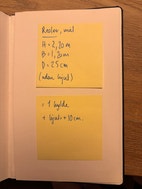 Reoler, mål
H = 2,20 m
B = 1,20 m
D = 25 cm
(uden hjul)
+ 1 hylde
+ hjul = 10 cm